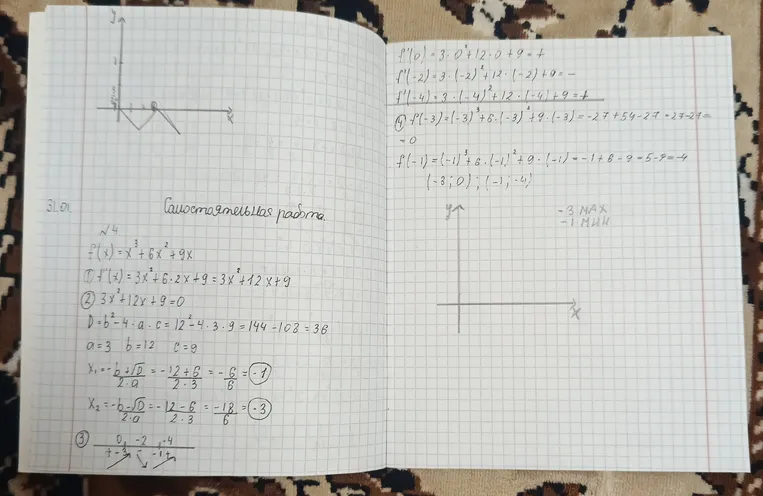 y
x
31.01
Самостоятельная работа.
№4
f(x)=x³+6x²+9x
① f'(x)=3x²+6·2x+9=3x²+12x+9
② 3x²+12x+9=0
D=b²-4·a·c=12²-4·3·9=144-108=36
a=3 b=12 c=9
x₁=-b+√D/2·a=-12+6/2·3=-6/6=-1
x₂=-b-√D/2·a=-12-6/2·3=-18/6=-3
③ 0, -2 , -4
+ -3 - -1 +
f'(0)=3·0²+12·0+9=+
f'(-2)=3·(-2)²+12·(-2)+9=-
f'(-4)=3·(-4)²+12·(-4)+9=+
④ f(-3)=(-3)³+6·(-3)²+9·(-3)=-27+54-27=27-27=
=0
f(-1)=(-1)³+6·(-1)²+9·(-1)=-1+6-9=5-9=-4
(-3;0); (-1;-4)
y
-3 МАХ
-1 МИН
x